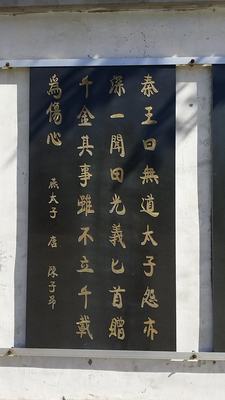 秦王日無道太子怨亦
深一聞田光義匕首贈
千金其事雖不立千載
為傷心
燕太子 唐 陳子昂